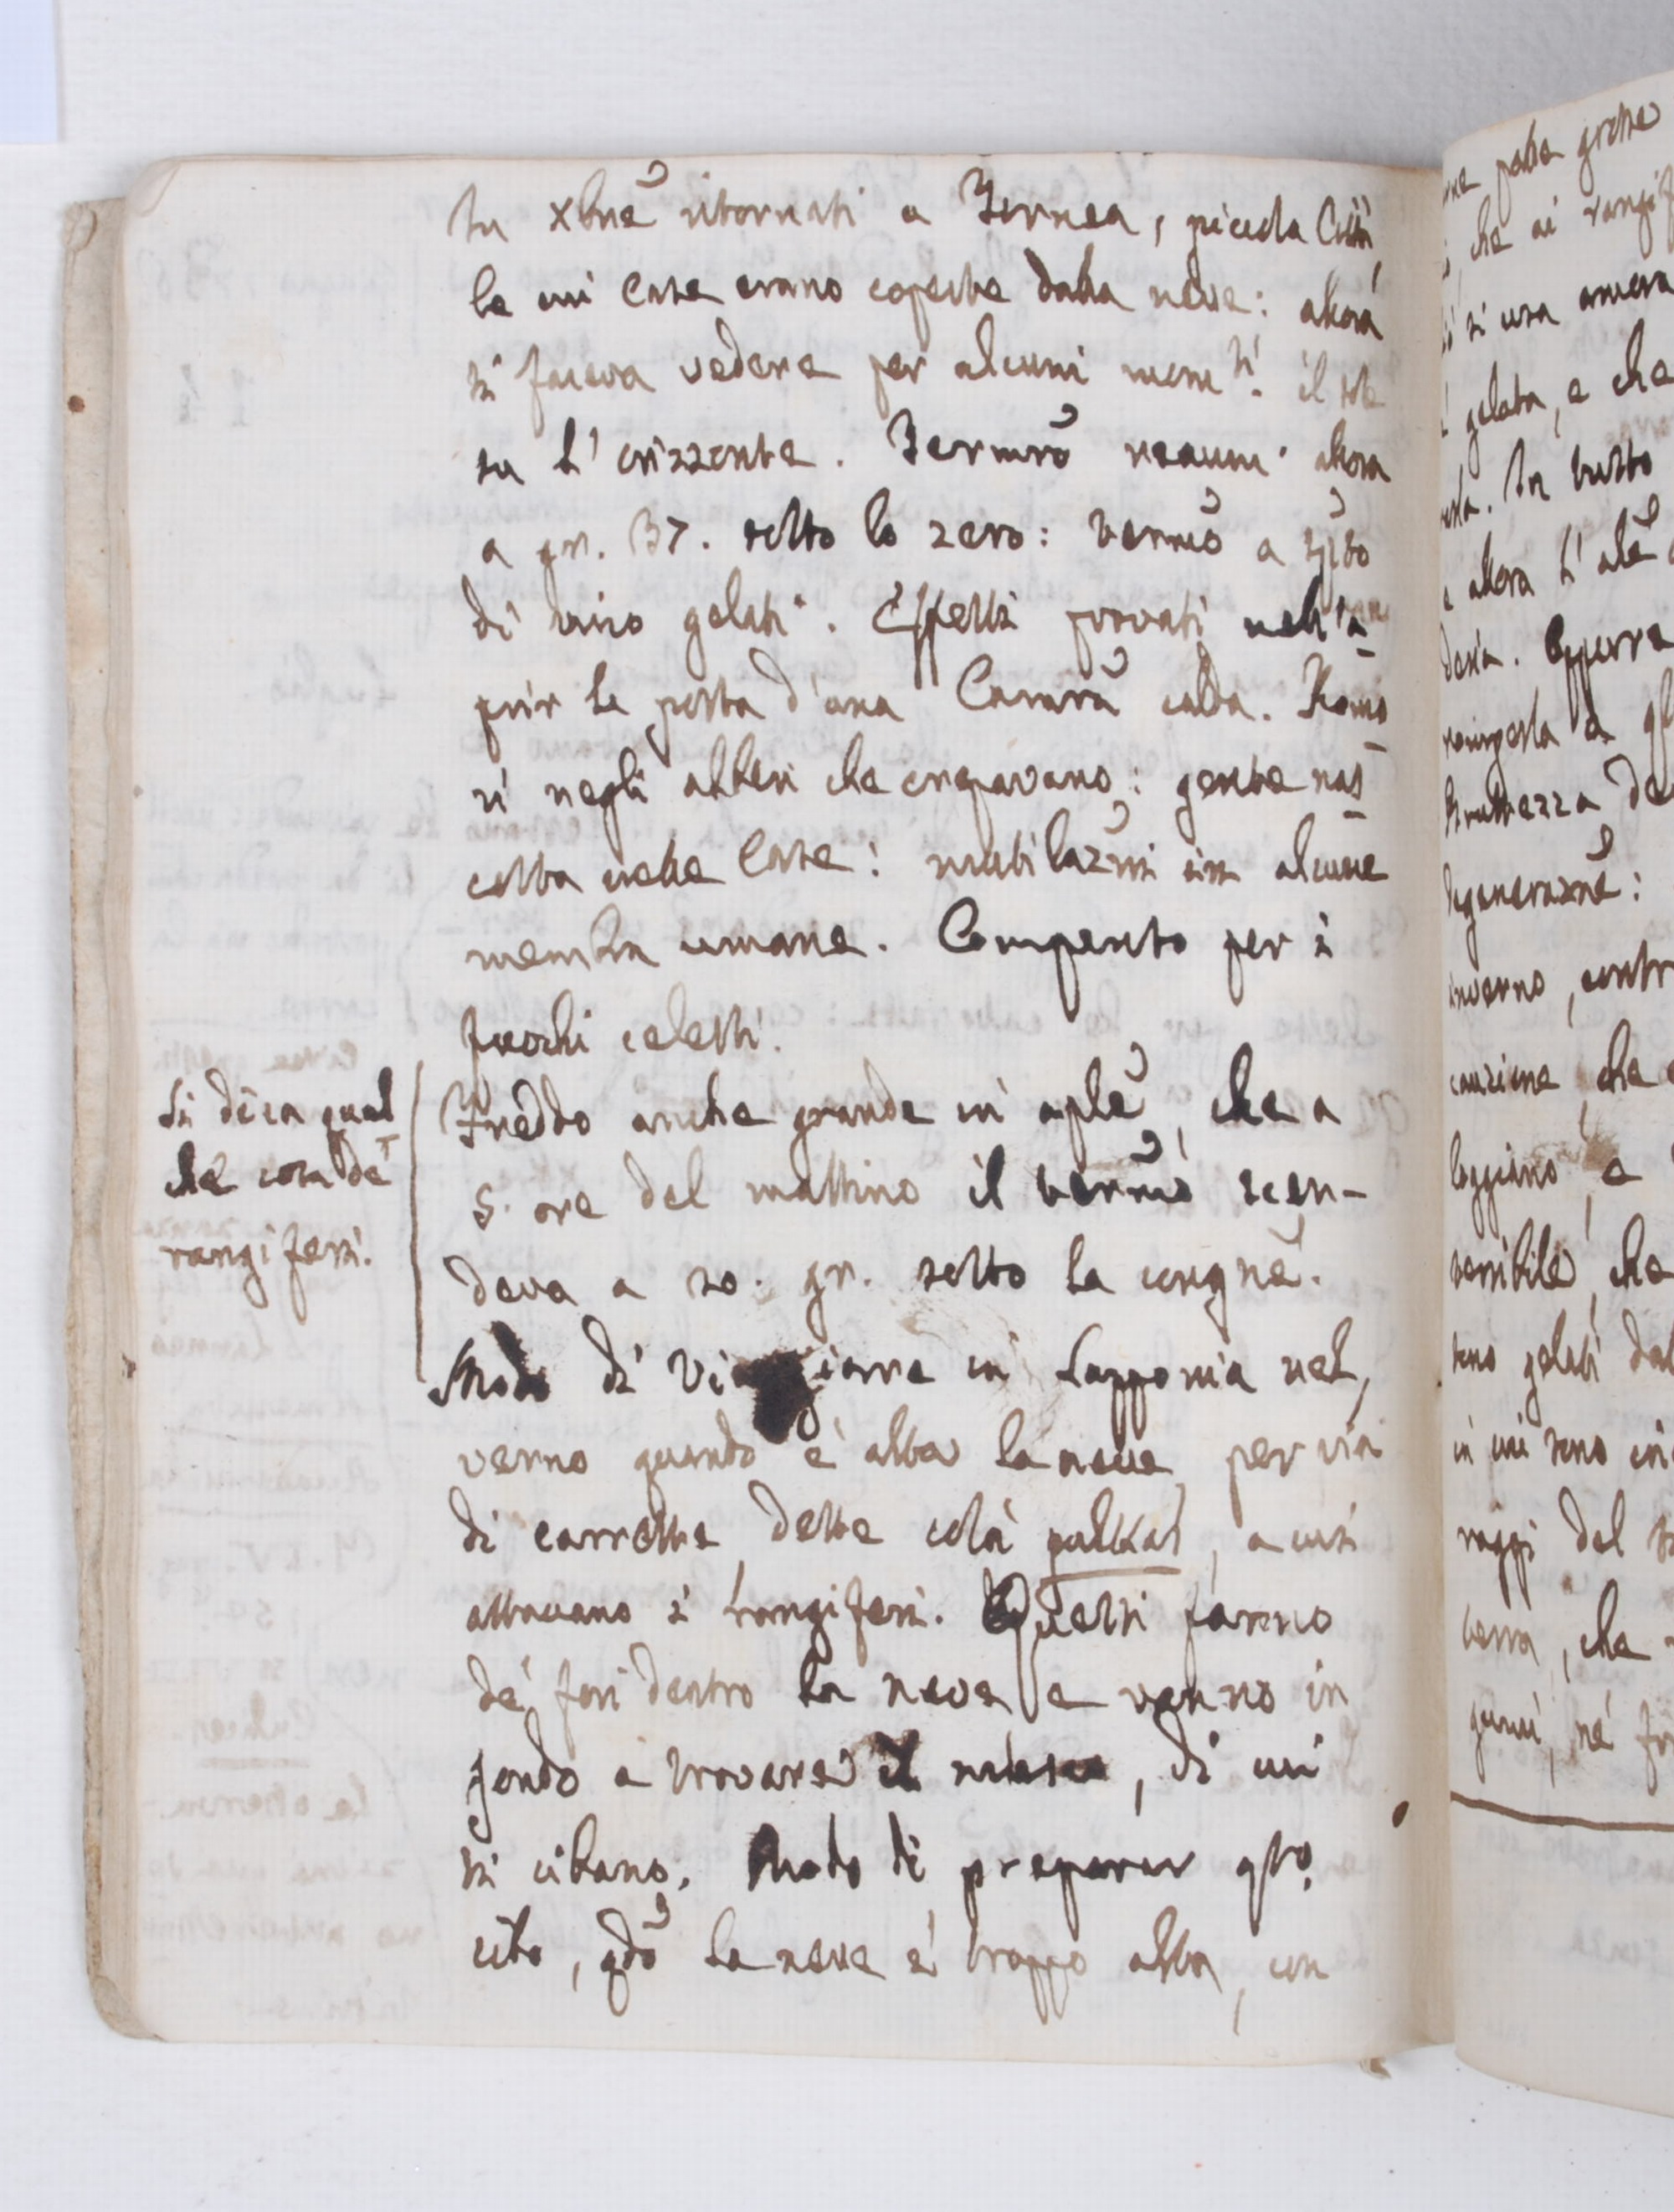 In xbrẽ ritornati a Tornea, piccola Città
le cui Case erano coperte dalla neve: allora
si faceva vedere per alcuni momti. il sole
su l'orizzonte. Termrõ reaum. allora
a gr. 37. sotto lo zero: termrõ a spito
di vino gelati. Effetti provati nell'a-
prir la porta d'una Camerã calda. Romo-
ri negli alberi che crepavano: gente nas-
costa nelle Case: mutilazm̃i in alcune
membra umane. Compenso per i
fuochi celesti.
Freddo anche grande in aplẽ, che a
5. ore del mattino il termrõ scen-
deva a 20. gr. sotto la congnẽ.
Modo di viaggiare in Lapponia nel,
verno quando è alta la neve per via
di carrette dette colà pulkas, a cui
attaccano i rangiferi. Questi fanno
de' fori dentro la neve e vanno in
fondo a trovare il musco, di cui
si cibano. Modo di preparar qto.
cibo, qdõ la neve è troppo alta, con
Si dica qual
che cosa de'
rangiferi.
che ai
si usa ancora
gelata, e che
In tutto
allora l'
Oppure
inverno,
che
e
che
gelati
in cui sono
raggi del
terra, che
né